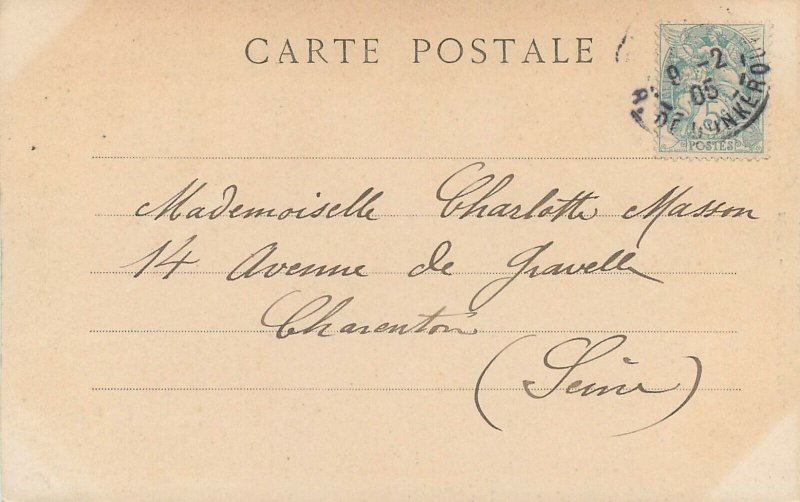 CARTE POSTALE
9 -2
05
R. DE DUNKERQU
5
POSTES
Mademoiselle Charlotte Masson
14 Avenue de Gravelle
Charenton
(Seine)